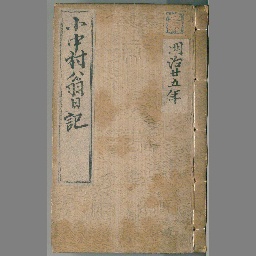 明治廿五年
小中村翁日記